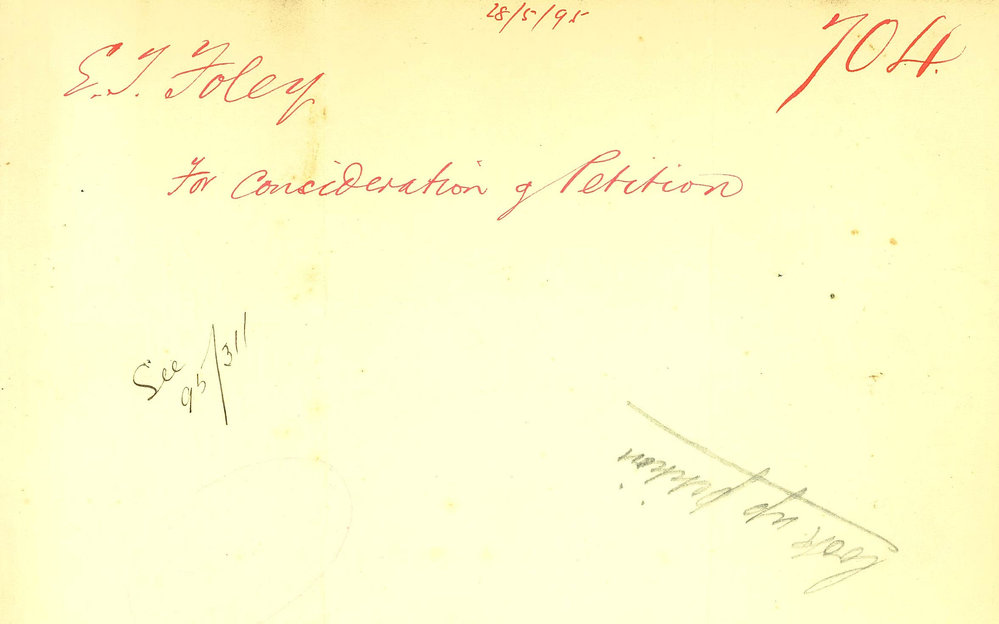 28/5/95
704.
E. T. Foley
For Consideration of Petition
See
95/311
Look up petition